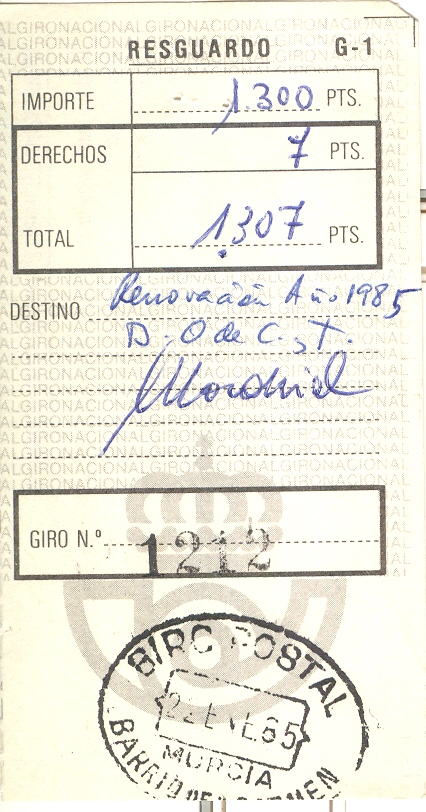 RESGUARDO G-1
IMPORTE 1.300 PTS.
DERECHOS 7 PTS.
TOTAL 1.307 PTS.
DESTINO Renovación Año 1985
D. O de C. y T.
Madrid
GIRO N.º 1212
GIRO POSTAL
22 ENE. 85
MURCIA
BARRIO DEL CARMEN